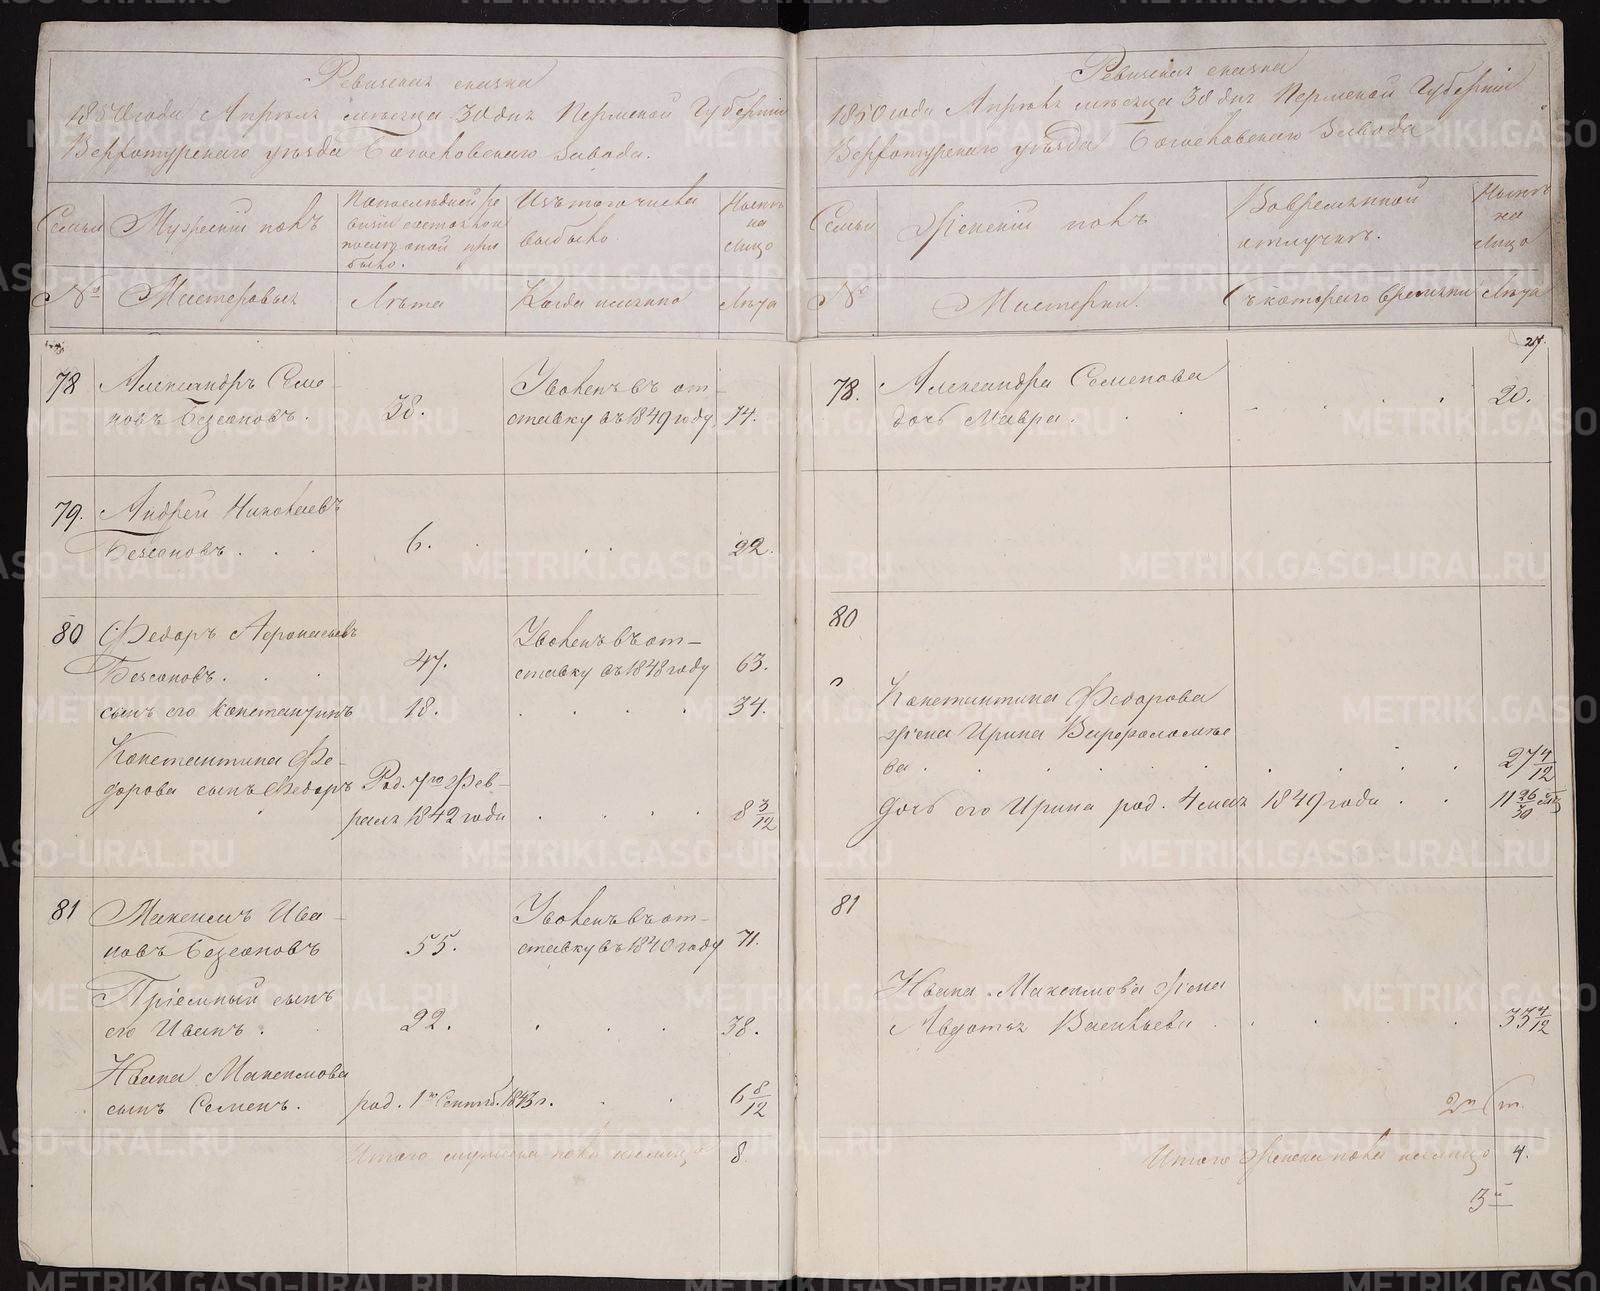 Ревизская сказка
1850 года Апреля месяца 30 дня Пермской Губернии
Верхотурского уезда Богословского Завода.
Семьи
Мужеский полъ
По последней ре
визіи состояло и
после оной при
было.
Изъ того числа
выбыло
Ныне
на
лицо
№
Мастеровыя
Лета
Когда именно
Лета
78
Александръ Семе
новъ Безсоновъ.
38.
Уволенъ въ от-
ставку въ 1849 году
74.
79.
Андрей Николаевъ
Безсоновъ . . .
6.
22.
80
Федоръ Афонасьевъ
Безсоновъ. . .
47.
Уволенъ въ от-
ставку въ 1848 году
63.
сынъ его Константинъ
18.
34.
Константина Фе-
дорова сынъ Федоръ
Род. 7го Фев-
раля 1842 года
8 3/12
81
Максимъ Ива-
новъ Безсоновъ
55.
Уволенъ въ от-
ставку въ 1840 году
71.
Пріемный сынъ
его Иванъ.
22.
38.
Ивана Максимова
сынъ Семенъ.
род. 1го Сентяб. 1843 г.
6 8/12
Итого мужеска пола налицо
8
Ревизская сказка
1850 года Апреля месяца 30 дня Пермской Губерніи
Верхотурскаго уезда Богословскаго Завода
Семьи
Женскій полъ
Во временной
отлучке.
Ныне
на
лицо
№
Мастерки.
Съ котораго времени
Лета
27.
78.
Александра Семенова
дочь Мавра.
20.
80
Константина Федорова
жена Ирина Варфоломее
ва
27 4/12
дочь его Ирина род. 4 мая 1849 года
11 26/30
81
Ивана Максимова жена
Авдотья Васильева
33 4/12
Итого женска пола налицо
4.
METRIKI.GASO-URAL.RU